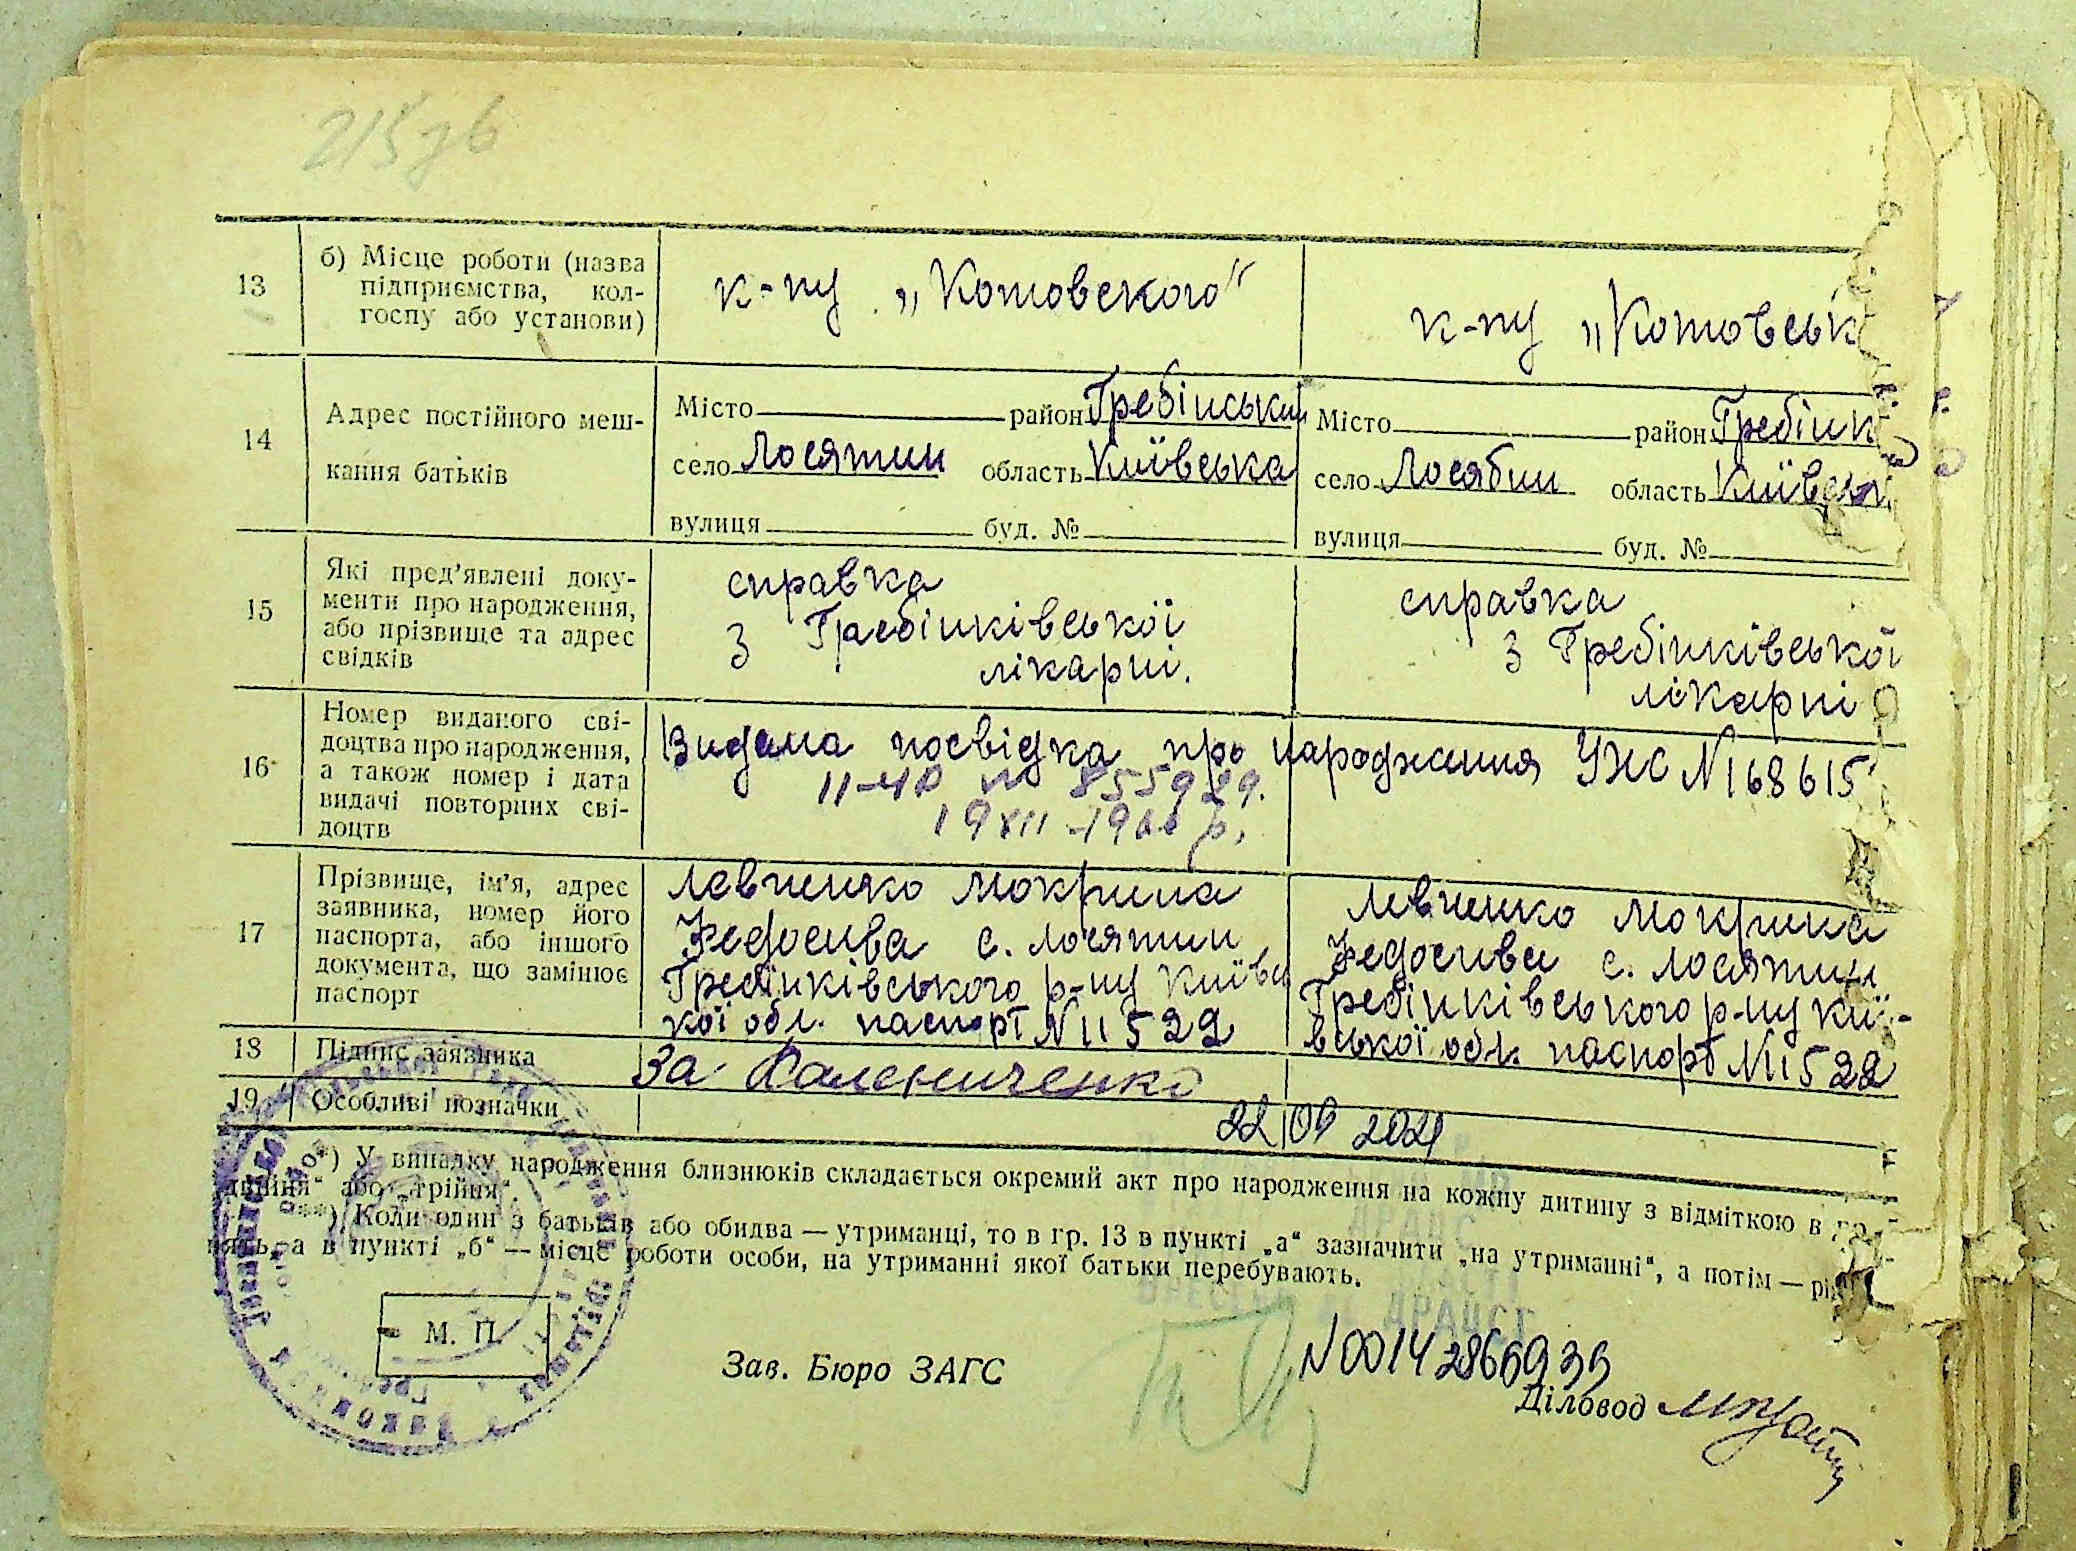 215 зв
13
б) Місце роботи (назва
підприємства, кол-
госпу або установи)
к-пу „Котовского“
к-пу „Котовськ
14
Адрес постійного меш-
кання батьків
Місто район Гребінський
село Лосятин область Київська
вулиця буд. №
Місто район Гребінк
село Лосятин область Київськ
вулиця буд. №
15
Які пред’явлені доку-
менти про народження,
або прізвище та адрес
свідків
справка
З Гребінківської
лікарні.
справка
З Гребінківської
лікарні
16
Номер виданого сві-
доцтва про народження,
а також номер і дата
видачі повторних сві-
доцтв
Видана посвідка про народження УЖС N 168615
№ 855929.
17
Прізвище, ім’я, адрес
заявника, номер його
паспорта, або іншого
документа, що замінює
паспорт
Левченко Мокрина
Федосива с. Лосятин
Гребінківського р-ну Київсь
кої обл. паспорт N 11522
Левченко Мокрина
Федосива с. Лосятин
Гребінківського р-ну Киї-
вської обл. паспорт N 11522
18
Підпис заявника
За Калениченко
19
Особливі позначки
22 09 2021
*) У випадку народження близнюків складається окремий акт про народження на кожну дитину з відміткою в гр.
„двійня“ або „трійня“.
**) Коли один з батьків або обидва — утриманці, то в гр. 13 в пункті „а“ зазначити „на утриманні“, а потім — рід
а в пункті „б“ — місце роботи особи, на утриманні якої батьки перебувають.
М. П.
Зав. Бюро ЗАГС
N 00142866939
Діловод